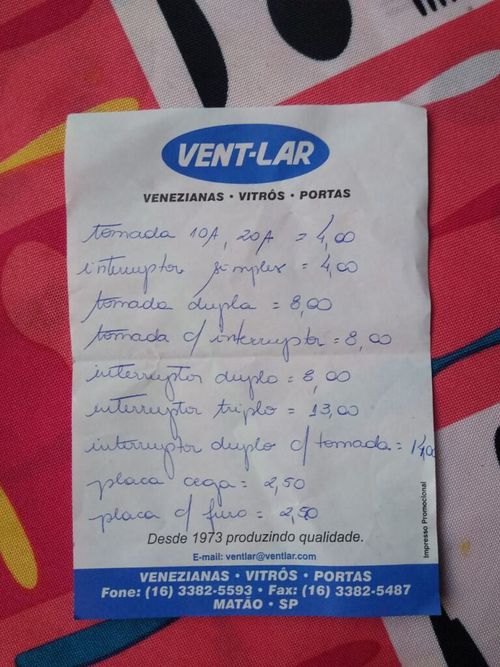 VENT-LAR
VENEZIANAS • VITRÓS • PORTAS
tomada 10A, 20A = 4,00
interruptor simples = 4,00
tomada dupla = 8,00
tomada c/ interruptor = 8,00
interruptor duplo = 8,00
interruptor triplo = 13,00
interruptor duplo c/ tomada = 14,00
placa cega = 2,50
placa c/ furo = 2,50
Desde 1973 produzindo qualidade.
E-mail: ventlar@ventlar.com
Impresso Promocional
VENEZIANAS • VITRÓS • PORTAS
Fone: (16) 3382-5593 • Fax: (16) 3382-5487
MATÃO • SP